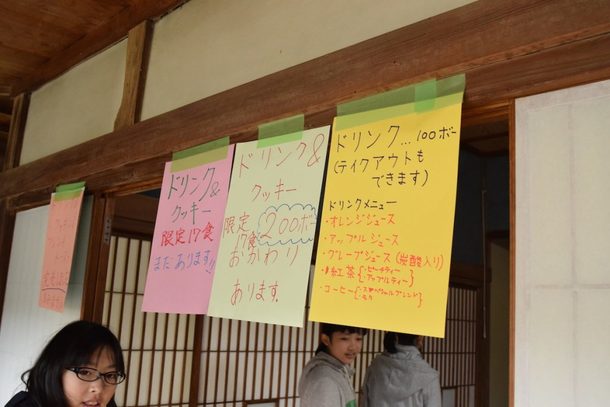 ドリンク&
クッキー
限定17食
まだあります!!
ドリンク&
クッキー
限定
17食
200ボー
おかわり
あります.
ドリンク...100ボー
(テイクアウトも
できます)
ドリンクメニュー
・オレンジジュース
・アップルジュース
・グレープジュース(炭酸入り)
・紅茶{・ピーチティー
・アップルティー}
・コーヒー{・スペシャルブレンド
・モカ}